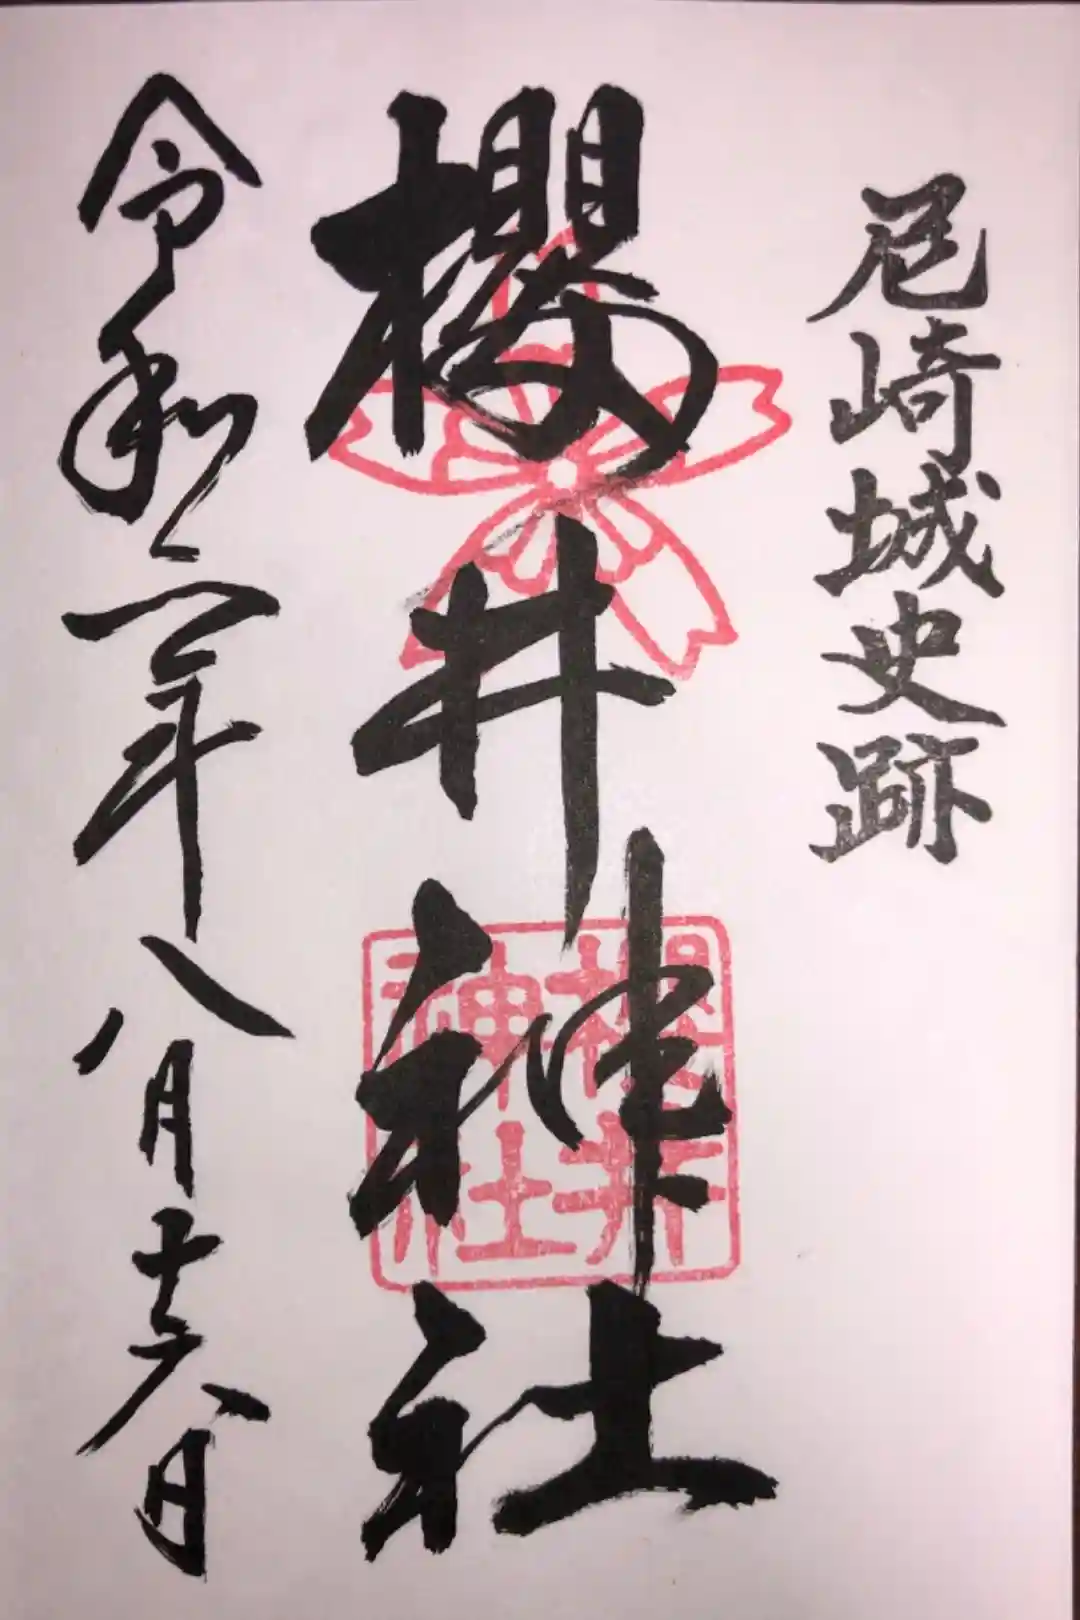 尼崎城史跡
櫻井神社
櫻井神社
令和二年八月十六日